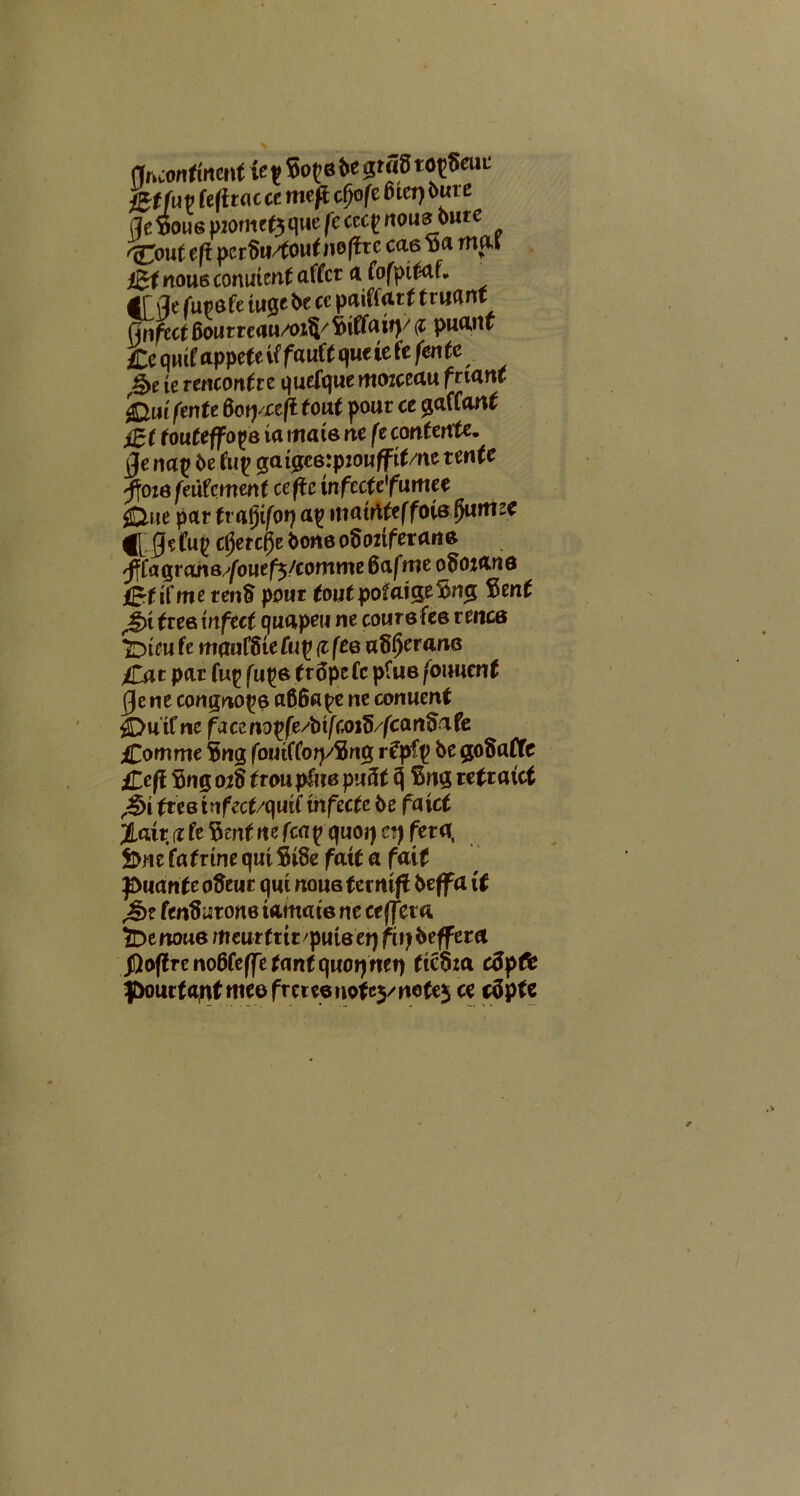 Incontinent ie y voys de grãd roydeur
Et suy lestrac ce mest chose bien dure
Je vous prometz que se cecy nous dure
Tout est perdu/tout nostre cas va mal
Et nous conuient aller a lospital.
¶ Je suys le iuge de ce paillart truant
Infect bourreau/ord/villain/& puant
Ce quil appete il fault que ie le sente
Se ie rencontre quelque morceau friant
Qui sente bon/cest tout pour ce gallant
Et touteffoys iamais ne se contente.
Je nay de luy gaiges:prouffit/ne rente
Fors seulement ceste infecte fumee
Que par trahison ay mainteffois humee
¶ Je luy cherche bons odoriferans
Flagrans/souefz/comme basme odorans
Et il me rend pour tout potaige vng vent
Si tres infect quapeu ne cours les rencs
Dieu le mauldie luy & ses adherans
Car par luy suys trõpe le plus souuent
Je ne congnoys abbaye ne conuent
Ou il ne face noyse/discord/scandale
Comme vng souillon/vng reply de godalle
Cest vng ord trou plus puãt q̃ vng retraict
Si tres infect/quil infecte de faict
Lair & le vent ne scay quon en fera
Vne latrine qui vide fait a fait
Puante odeur qui nous ternist deffait
Se lendurons iamais ne cessera
De nous meurtrir/puis en fin deffera
Nostre noblesse tant quon nen tiẽdra cõpte
Pourtant mes freres notez/notez ce cõpte